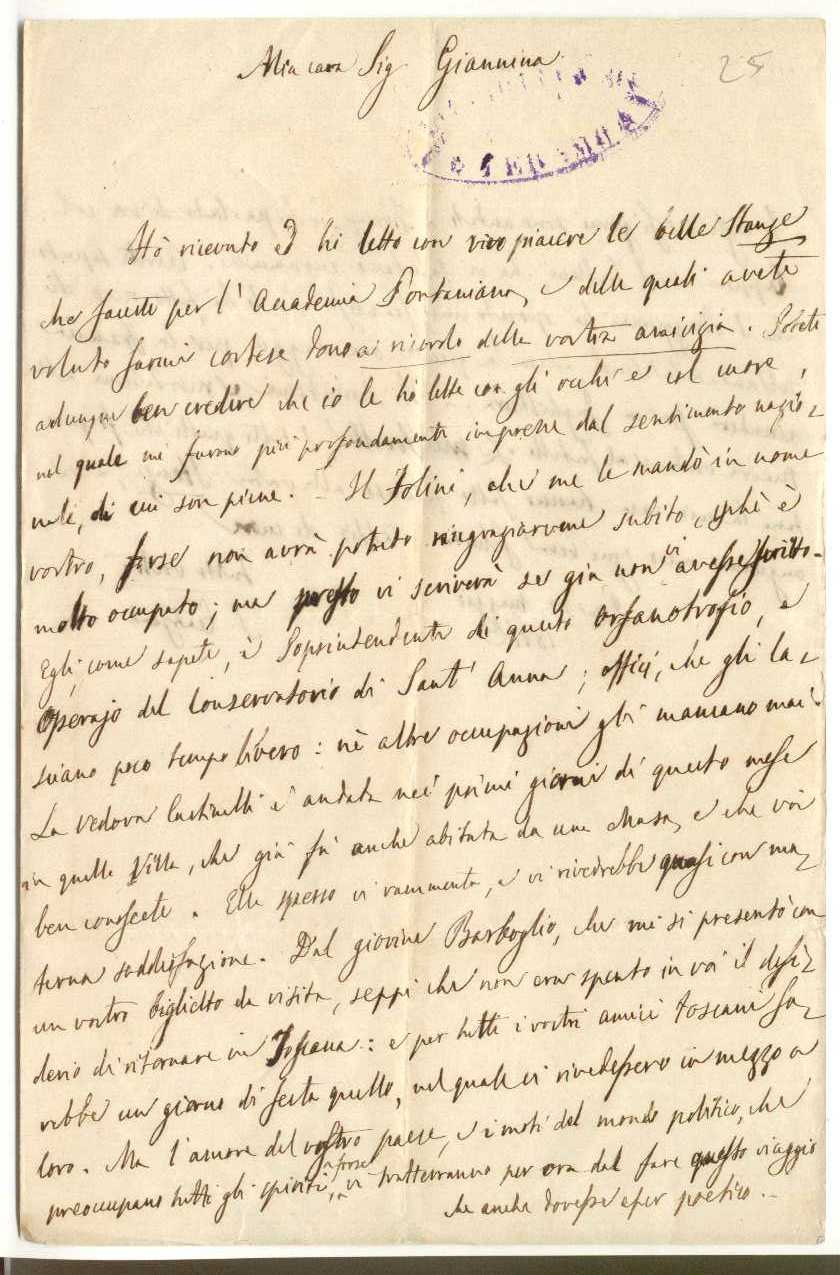 Mia cara Sig Giannina
25
TERAMO
Hò ricevuto ed hò letto con vivo piacere le belle Stanze
che faceste per l'Accademia Pontaniana, e delle quali avete
voluto farmi cortese dono a ricordo della vostra amicizia. Potete
adunque ben credere che io le hò lette con gli occhi e col cuore,
nel quale mi furono più profondamente impresse dal sentimento nazio-
nale, di cui son piene. – Il Tolini, che me le mandò in nome
vostro, forse non avrà potuto ringraziarvene subito, perchè è
molto occupato; ma presto vi scriverà se già non vi avesse scritto.
Egli, come sapete, è Soprintendente di questo Orfanotrofio, e
Operajo del Conservatorio di Sant'Anna; offici, che gli la-
sciano poco tempo libero: nè altre occupazioni gli mancano mai.
La vedova è andata nei primi giorni di questo mese
in quella Villa, che già fù anche abitata da una Musa, e che voi
ben conoscete. Ella spesso vi rammenta, e vi rivedrebbe quasi con ma-
terna soddisfazione. Dal giovine Barboglio, che mi si presentò con
un vostro biglietto da visita, seppi che non era spento in voi il desi-
derio di ritornare in Toscana: e per tutti i vostri amici toscani sa-
rebbe un giorno di festa quello, nel quale vi rivedessero in mezzo a
loro. Ma l'amore del vostro paese, e i moti del mondo politico, che
preoccupano tutti gli spiriti, forse vi tratterranno per ora dal fare questo viaggio
che anche dovesse esser poetico. –